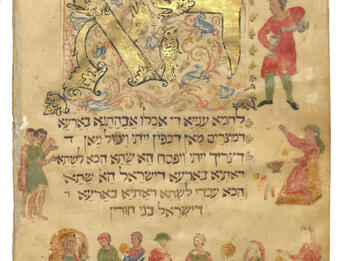 הא
לחמא עניא די אכלו אבהתנא בארעא
דמצרים מאן דכפין ייתי ויכול מאן
דצריך ייתי ויפסח הא שתא הכא לשתא
דאתיא בארעא דישראל הא שתא
הכא עבדי לשתא דאתיא בארעא ד
דישראל בני חורין